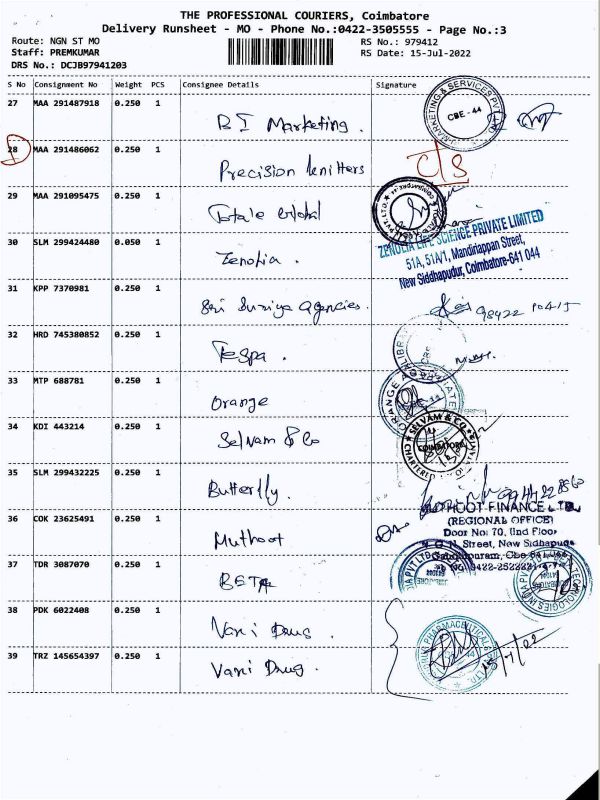 THE PROFESSIONAL COURIERS, Coimbatore
Delivery Runsheet - MO - Phone No.:0422-3505555 - Page No.:3
Route: NGN ST MO RS No.: 979412
Staff: PREMKUMAR RS Date: 15-Jul-2022
DRS No.: DCJB97941203
S No Consignment No Weight PCS Consignee Details Signature
27 MAA 291487918 0.250 1
BI Marketing. MARKETING & SERVICES PVT CBE - 44
28 MAA 291486062 0.250 1
Precision knitters C/S
29 MAA 291095475 0.250 1
Totale Global
30 SLM 299424480 0.050 1 ZENOLIA LIFE SCIENCE PRIVATE LIMITED
Zenolia. 51A, 51A/1, Mandiriappan Street,
New Siddhapudur, Coimbatore-641 044
31 KPP 7370981 0.250 1
Sri Suriya Agencies. 98422 10415
32 HRD 745380852 0.250 1
Tespa.
33 MTP 688781 0.250 1
Orange ORANGE
34 KDI 443214 0.250 1
Selvam & Co SELVAM & CO. COIMBATORE CHARTERED
35 SLM 299432225 0.250 1
Butterfly.
36 COK 23625491 0.250 1 MUTHOOT FINANCE LTD.
(REGIONAL OFFICE)
Muthoot Door No: 70, IInd Floor
Street, New Sidhapudur
37 TDR 3087070 0.250 1
BETA PVT.LTD TECHNOLOGIES INDIA PVT
38 PDK 6022408 0.250 1
Vani Drug. PHARMACEUTICALS
39 TRZ 145654397 0.250 1 15/7/22
Vani Drug.